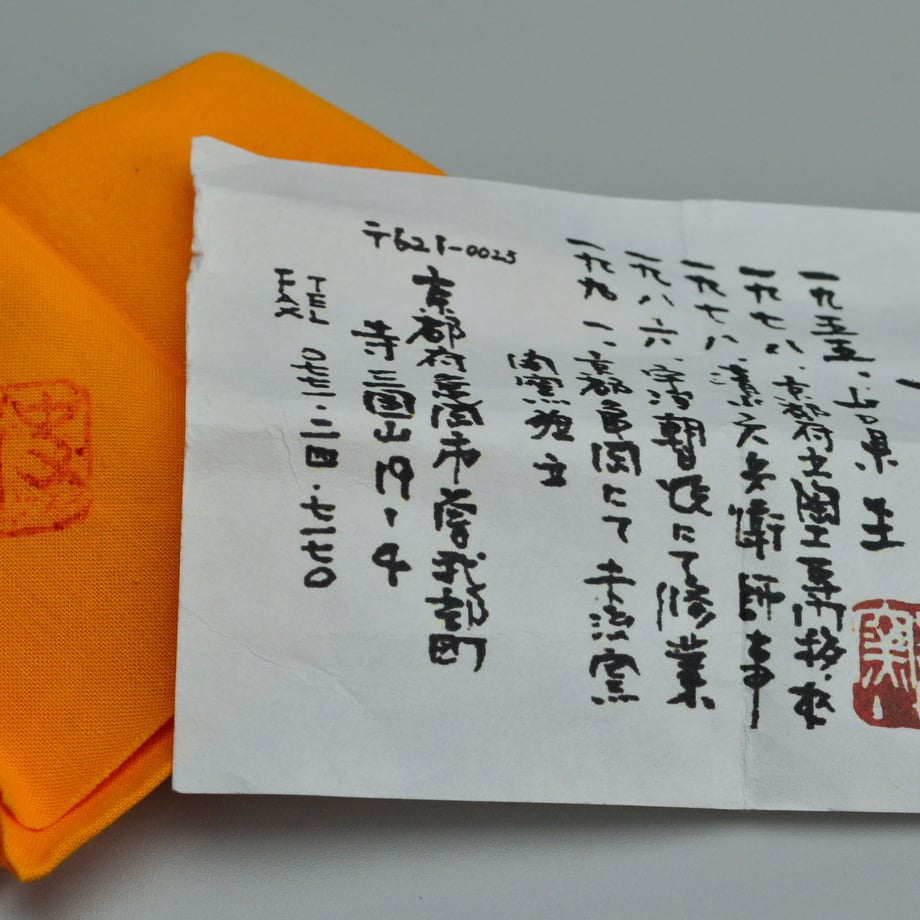 一九五五、山口県 生
一九七八、京都府立陶工専門校 卆
一九七八、清水六兵衛 師事
一九八六、宇治朝日焼にて修業
一九九一、京都亀岡にて
開窯独立
〒621-0025
京都府亀岡市曽我部町
寺三国山19・4
TEL 〇七七一・二四・七一七〇
FAX
窯